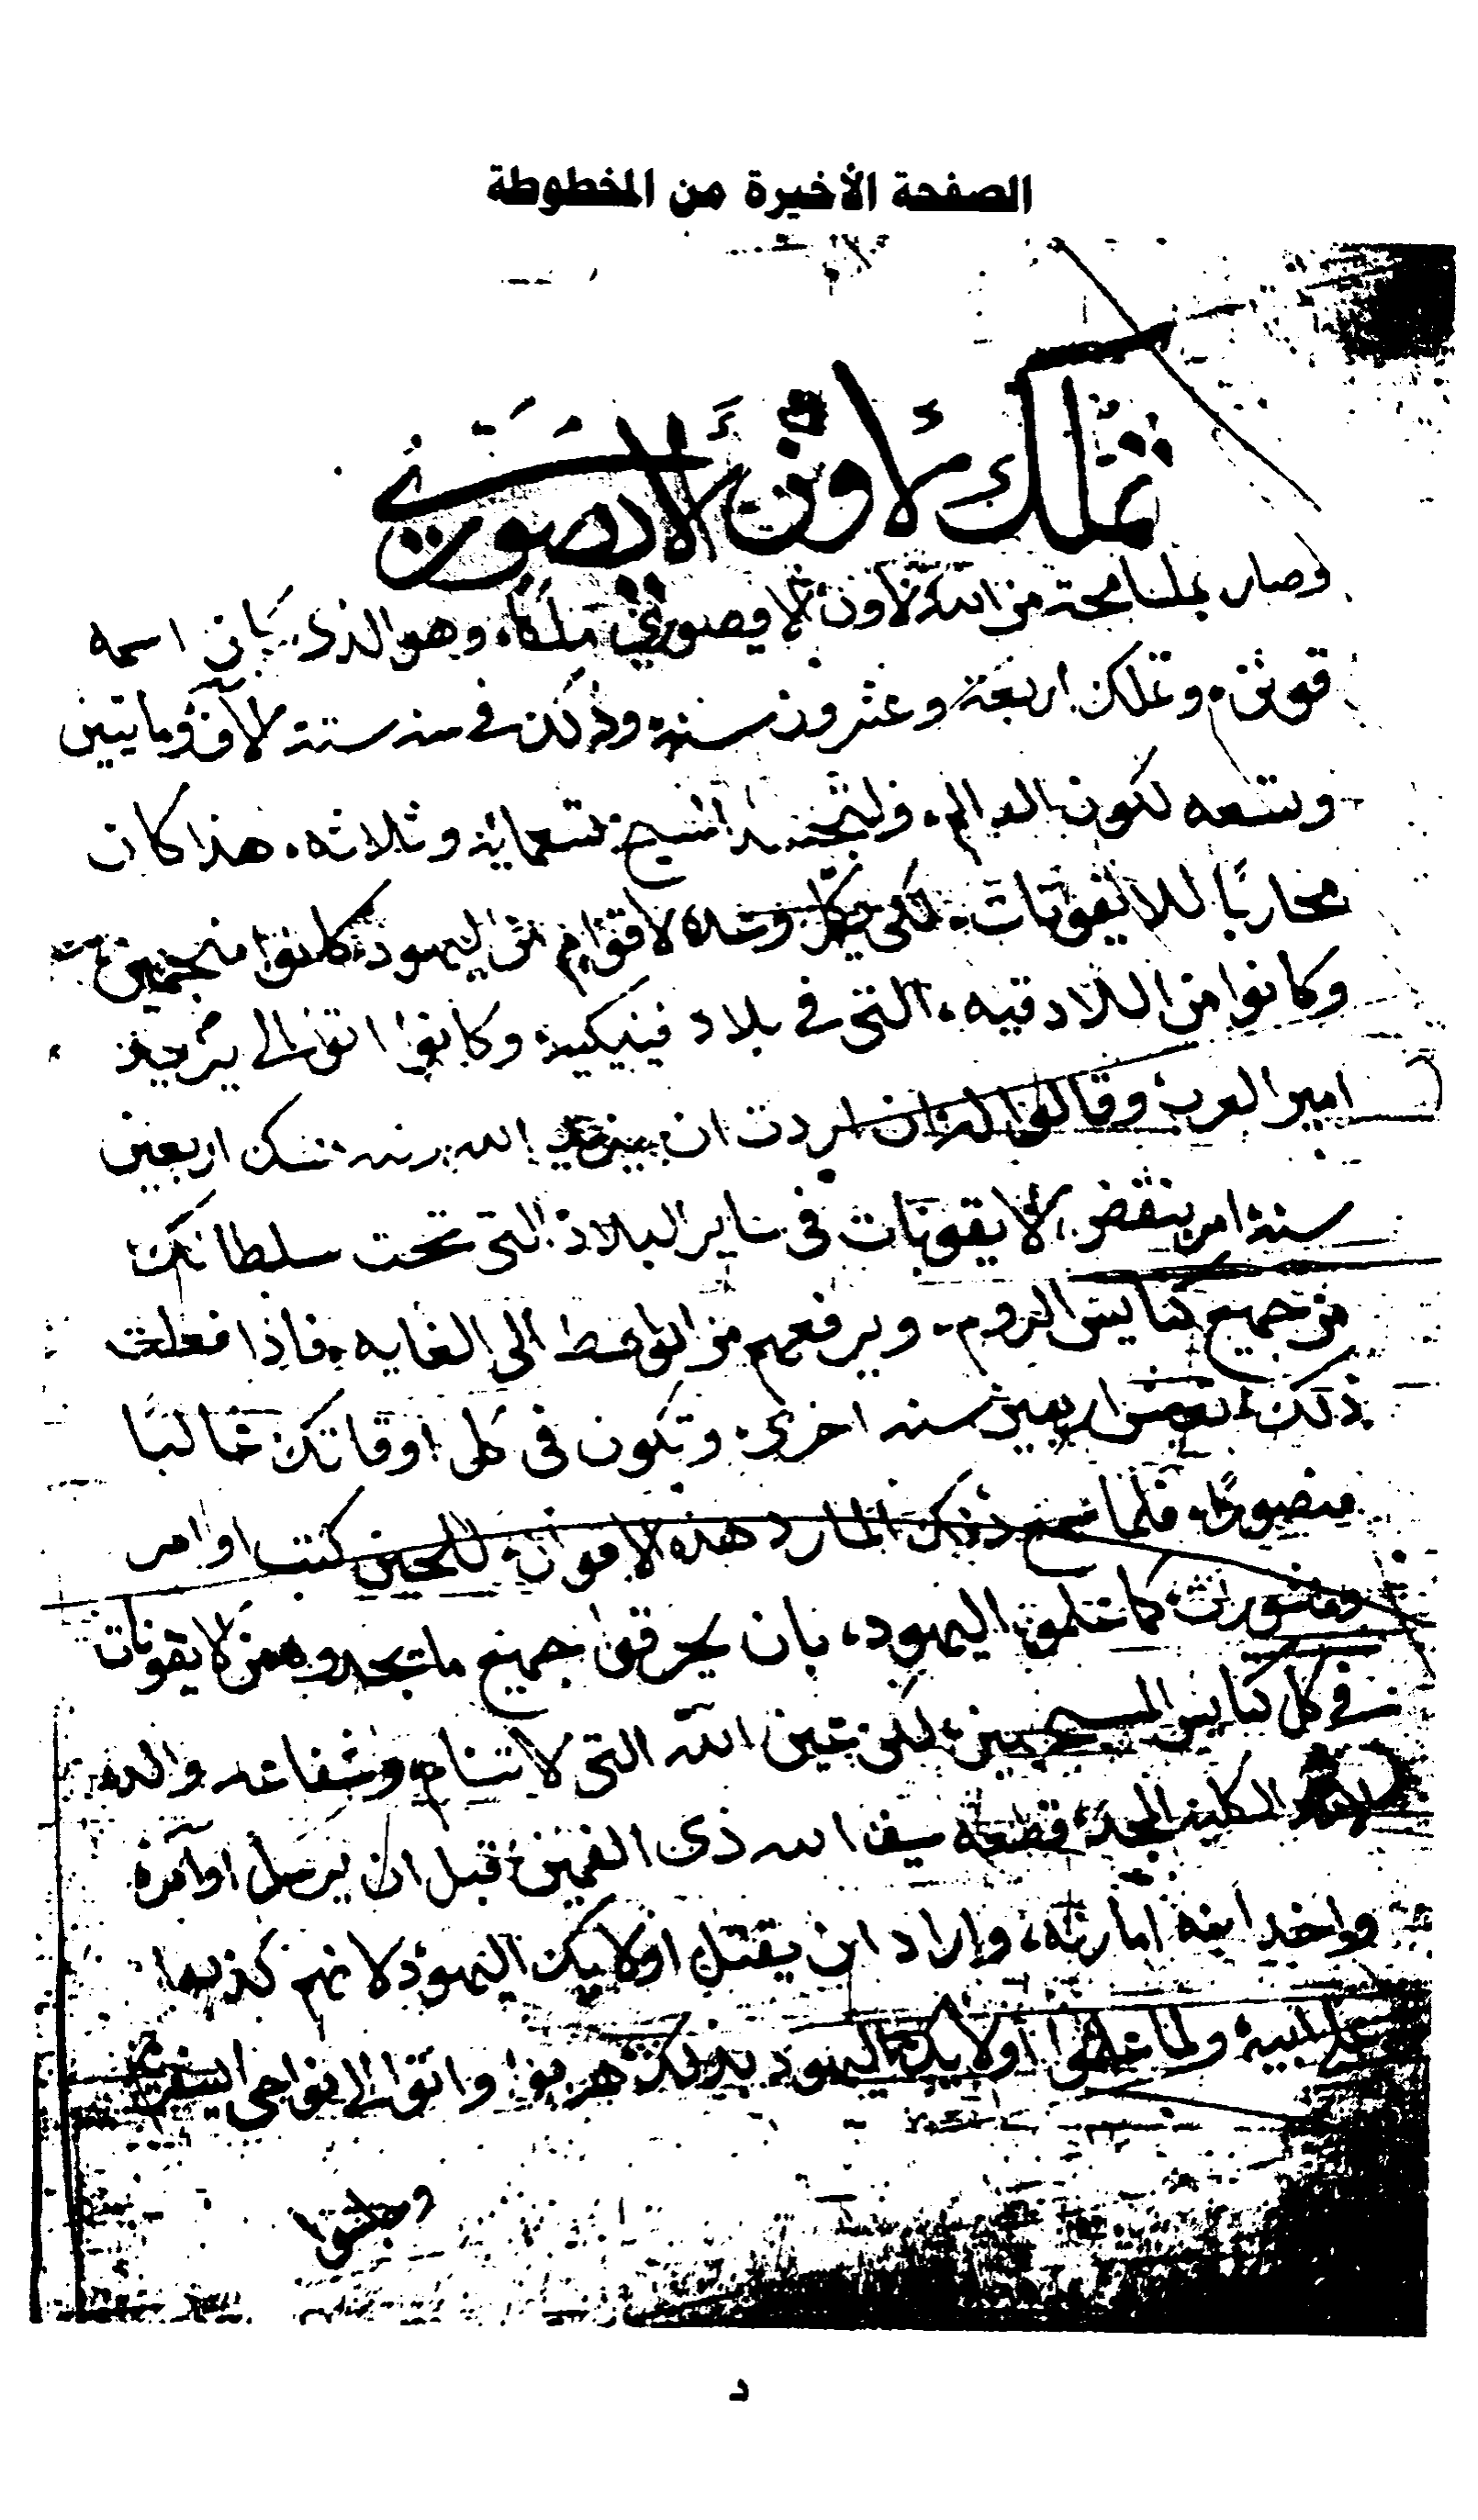 الصفحة الأخيرة من المخطوطة
تملك لاون الايصوري
وصار بمسامحة من الله لاون الايصوري ملكًا، وهو الذي كان اسمه
قونن، وتملك اربعة وعشرون سنة وذلك في سنة ستة الآف ومايتين
وتسعه لكون العالم، ولتجسد المسيح تسعماية وثلاثه، هذا كان
محاربًا للايقونات، لكن وهذه لاقوام من اليهود كانوا منجمين
وكانوا من اللادقيه، التي في بلاد فينيكية وكانوا اتوا الى يزيد
امير العرب وقالوا له ان اردت ان يزيد الله زمنه تملك اربعين
سنة امر بنقض الايقونات في ساير البلاد التي تحت سلطانك
من جميع كنايس الروم، ويرفعهم من الوسط الى الغايه، فاذا فعلت
ذلك، تعيش اربعين سنه اخرى، وتكون في كل اوقاتك غالبًا
منصورًا، فلما سمع ذلك المارد هذه الاقوال، للحين كتب اوامر
ومنشورات كما علموه اليهود، بان يحرقوا جميع ما يجدوه من الايقونات
في كل كنايس المسيحيين، لكن عين الله التي لا تنام وشفاعة والدة
الاله الكلية المجد، قطعه سيف الله ذي الفمين، قبل ان يرسل اوامره
واخذ ابنه امارته، واراد ان يقتل اولايك اليهود لانهم كذبوا
على ابيه ولما علموا اولايك اليهود بذلك هربوا واتوا الى نواحي
وجلسوا
د